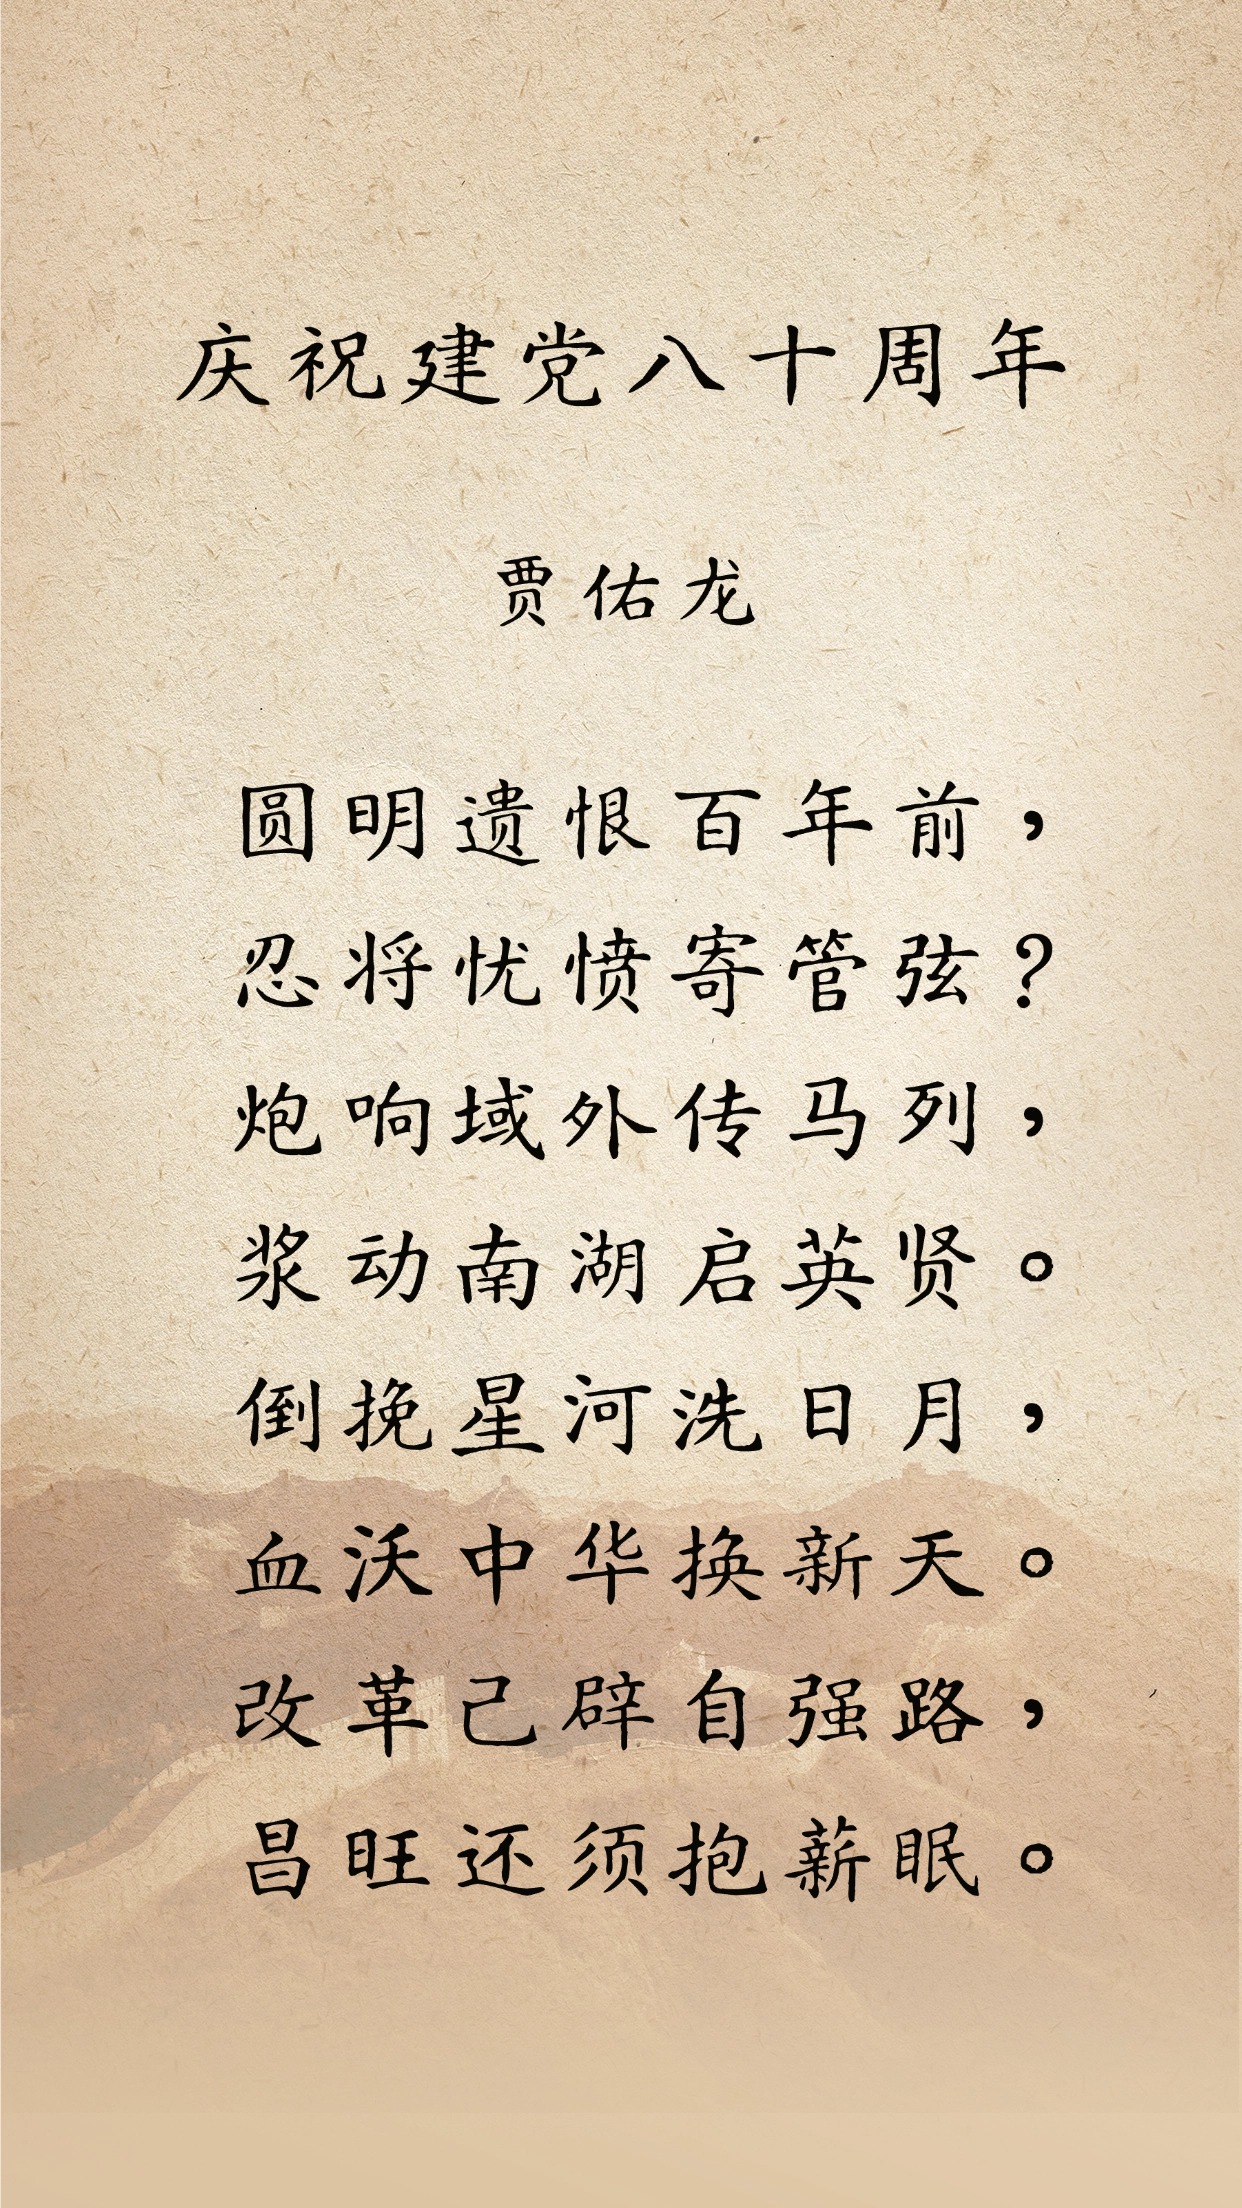 庆祝建党八十周年
贾佑龙
圆明遗恨百年前，
忍将忧愤寄管弦？
炮响域外传马列，
浆动南湖启英贤。
倒挽星河洗日月，
血沃中华换新天。
改革己辟自强路，
昌旺还须抱薪眠。